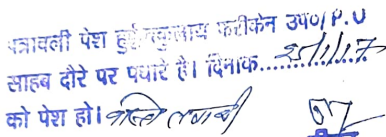 पत्रावली पेश हुई। वकुलाय फरीकेन उप०/P.O
साहब दौरे पर पधारे है। दिनांक........25/1/17
को पेश हो।